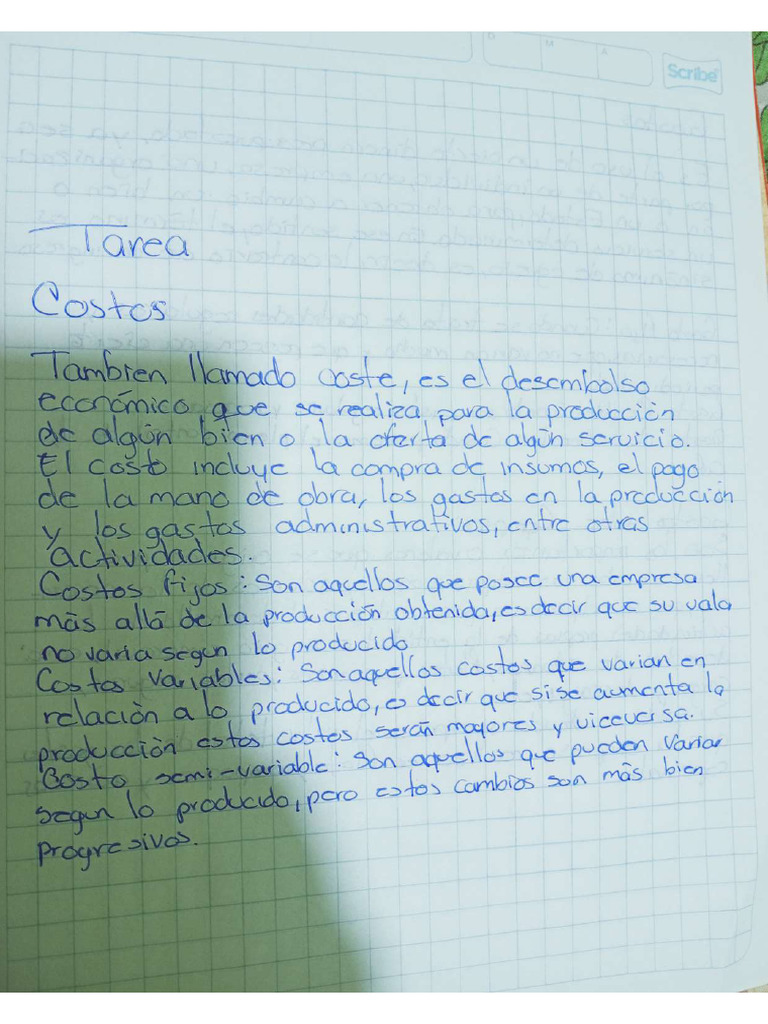 D
M
A
Scribe
Tarea
Costos
Tambien llamado coste, es el desembolso
económico que se realiza para la producción
de algún bien o la oferta de algún servicio.
El costo incluye la compra de insumos, el pago
de la mano de obra, los gastos en la producción
y los gastos administrativos, entre otras
actividades.
Costos fijos: Son aquellos que posee una empresa
más allá de la producción obtenida, es decir que su valo
no varia segun lo producido
Costos variables: Son aquellos costos que varian en
relación a lo producido, es decir que si se aumenta la
producción estos costes serán mayores y viceversa.
Costo semi-variable: Son aquellos que pueden variar
segun lo producido, pero estos cambios son más bien
progresivos.